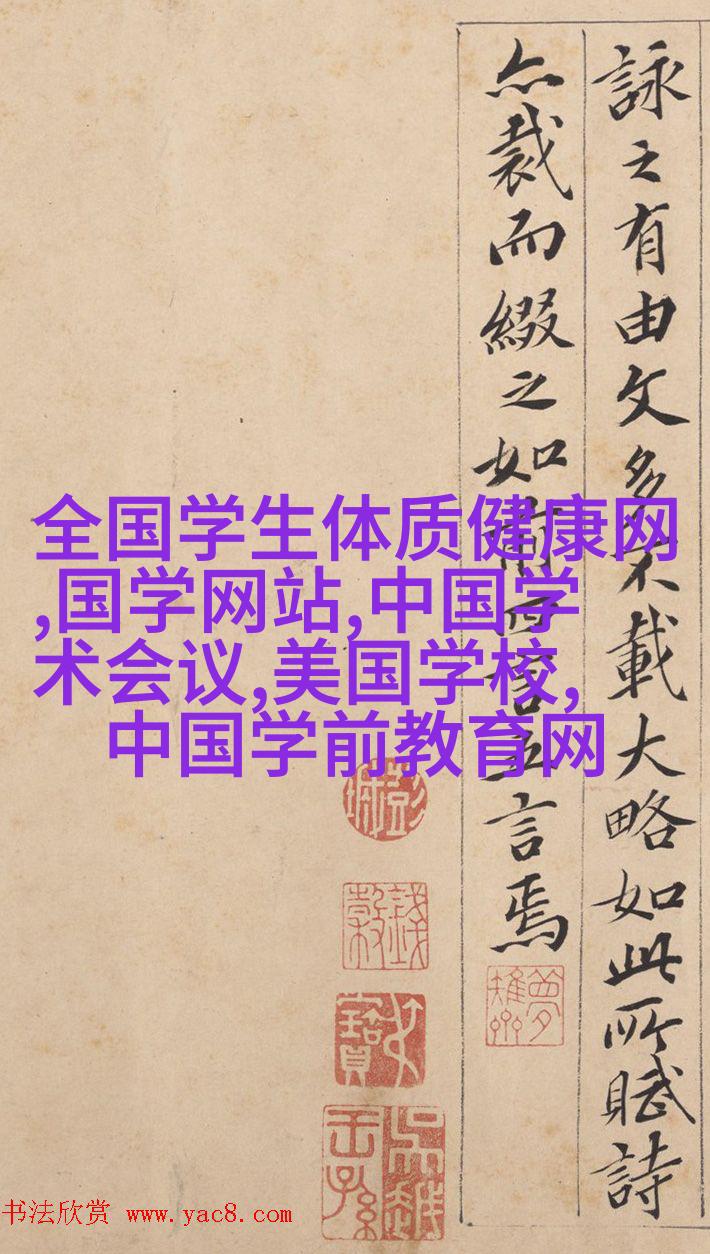 詠之有由文多不載大略如此所賦詩
亦裁而綴之如前四言五言焉
全国学生体质健康网
,国学网站,中国学
术会议,美国学校,
中国学前教育网
书法欣赏 www.yac8.com